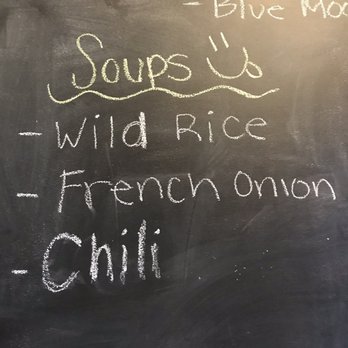 - Blue Moo
Soups
- Wild Rice
- French Onion
- Chili